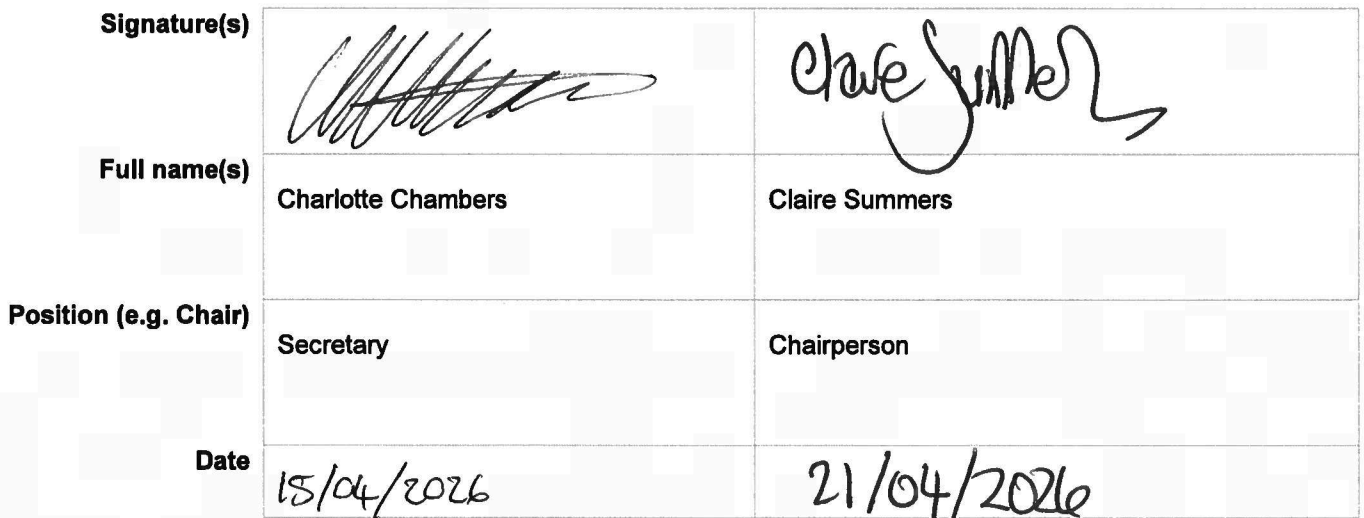 Signature(s) Claire Summers
Full name(s) Charlotte Chambers Claire Summers
Position (e.g. Chair) Secretary Chairperson
Date 15/04/2026 21/04/2026